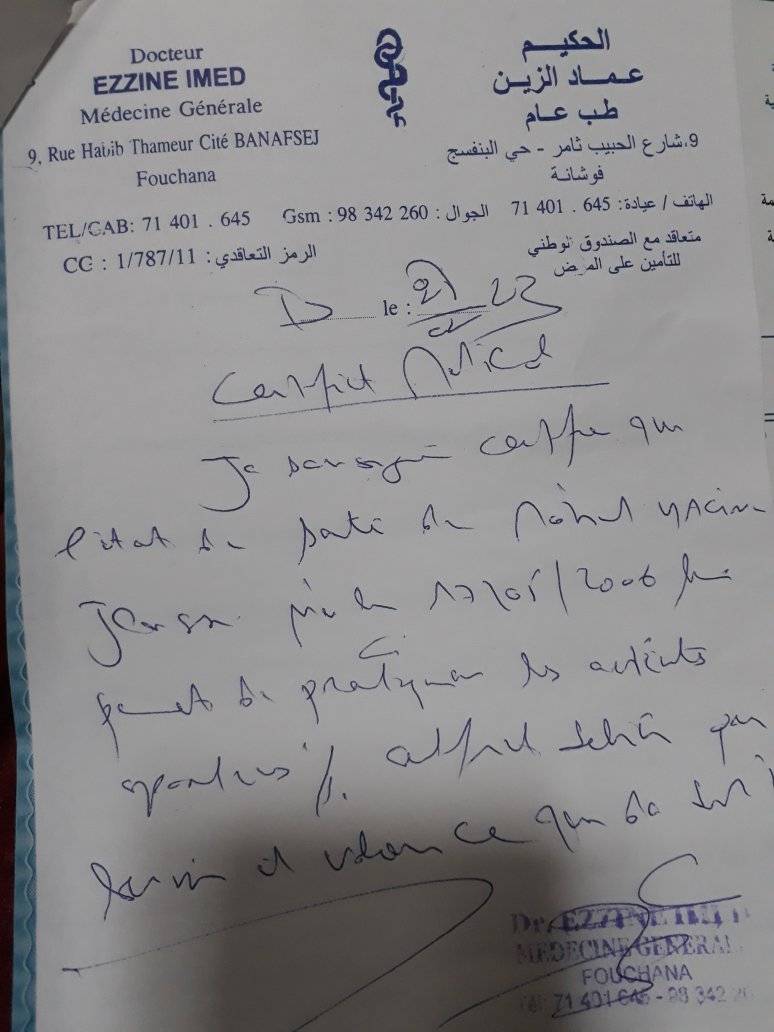 Docteur
EZZINE IMED
Médecine Générale
9, Rue Habib Thameur Cité BANAFSEJ
Fouchana
الحكيم
عماد الزين
طب عام
9،شارع الحبيب ثامر - حي البنفسج
فوشانة
TEL/CAB: 71 401 . 645 Gsm : 98 342 260 : الجوال الهاتف / عيادة: 71 401 . 645
CC : 1/787/11 : الرمز التعاقدي
متعاقد مع الصندوق الوطني
للتأمين على المرض
le : 23
Certificat Médical
Je soussigné certifie que
l'état de santé de
né le 17/05/2006 lui
permet de pratiquer les activités
sportives
servir et valoir ce que de droit
Dr. EZZINE IMED
MEDECINE GENERAL
FOUCHANA
71 401 645 - 98 342 2